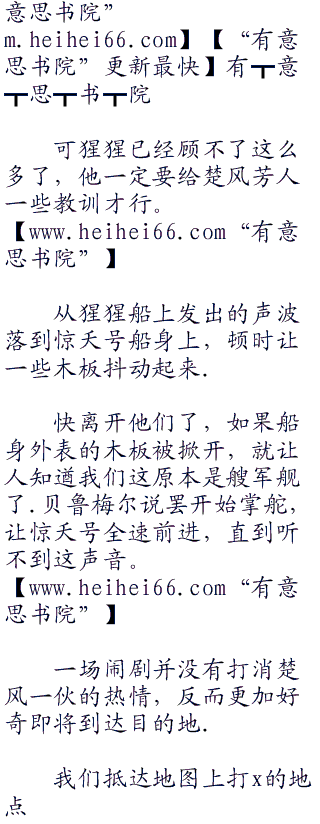 意思书院”
m.heihei66.com】【“有意
思书院”更新最快】有┳意
┳思┳书┳院
可猩猩已经顾不了这么
多了，他一定要给楚风芳人
一些教训才行。
【www.heihei66.com“有意
思书院”】
从猩猩船上发出的声波
落到惊天号船身上，顿时让
一些木板抖动起来.
快离开他们了，如果船
身外表的木板被掀开，就让
人知道我们这原本是艘军舰
了.贝鲁梅尔说罢开始掌舵，
让惊天号全速前进，直到听
不到这声音。
【www.heihei66.com“有意
思书院”】
一场闹剧并没有打消楚
风一伙的热情，反而更加好
奇即将到达目的地.
我们抵达地图上打x的地
点